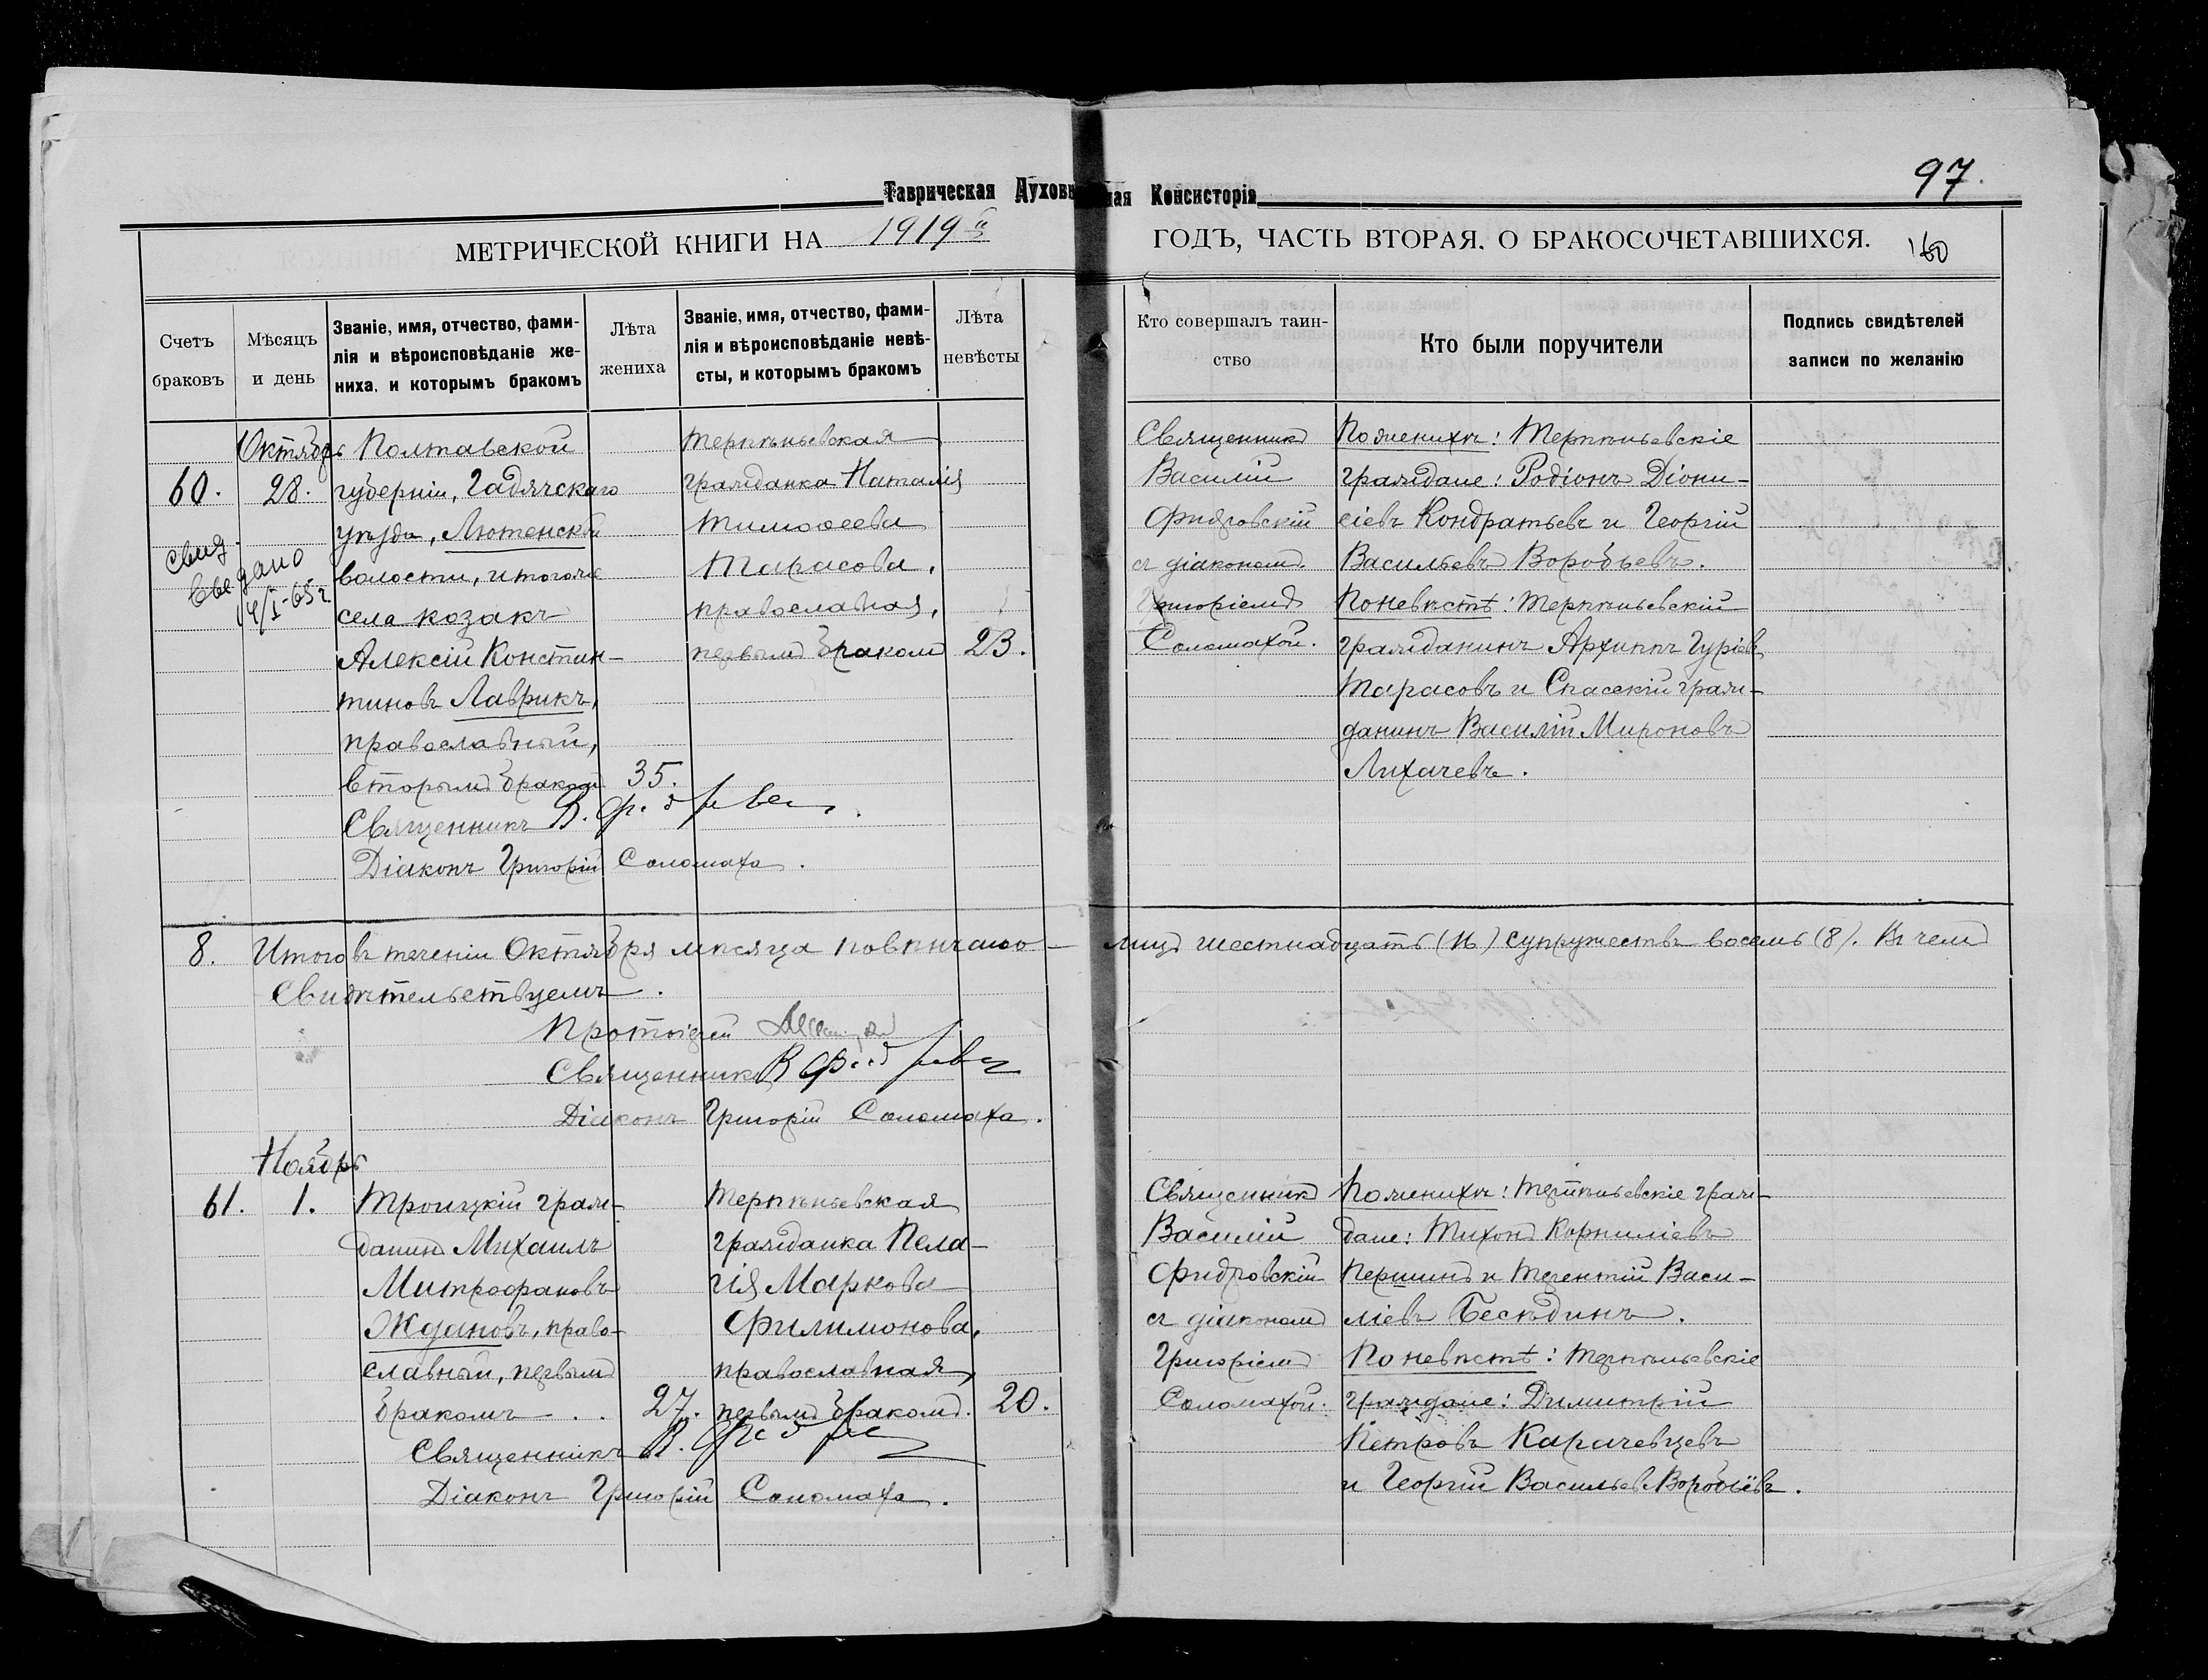 97.
Таврическая Духовная Консисторія
МЕТРИЧЕСКОЙ КНИГИ НА 1919 й ГОДЪ, ЧАСТЬ ВТОРАЯ, О БРАКОСОЧЕТАВШИХСЯ.
160
Счетъ
браковъ
Мѣсяцъ
и день
Званіе, имя, отчество, фами-
лія и вѣроисповѣданіе же-
ниха, и которымъ бракомъ
Лѣта
жениха
Званіе, имя, отчество, фами-
лія и вѣроисповѣданіе невѣ-
сты, и которымъ бракомъ
Лѣта
невѣсты
Кто совершалъ таин-
ство
Кто были поручители
Подпись свидѣтелей
записи по желанію
60.
Свид.
дано
14/I-65 г.
Октябрь
28.
Полтавской
губерніи, Гадячскаго
уѣзда, Лютенской
волости, и тогоже
села козакъ
Алексій Констан-
тиновъ Лаврикъ,
православный,
вторымъ бракомъ
35.
Терпѣньевская
гражданка Наталія
Тимоѳеева
Тарасова,
православная,
первымъ бракомъ
23.
Священникъ В.
Діаконъ Григорій Соломаха.
Священникъ
Василій
Фидровскій
съ діакономъ
Григоріемъ
Соломахой.
По женихѣ: Терпѣньевскіе
граждане: Родіонъ Діони-
сіевъ Кондратьевъ и Георгій
Васильевъ Воробьевъ.
По невѣстѣ: Терпѣньевскій
гражданинъ Архипъ Гуріевъ
Тарасовъ и Спасскій граж-
данинъ Василій Мироновъ
Лихачевъ.
8. Итого въ теченіи Октября мѣсяца повѣнчано лицъ шестнадцать (16) супружествъ восемь (8). Въ чемъ
свидѣтельствуемъ.
Протоіерей
Священникъ В
Діаконъ Григорій Соломаха.
Ноябрь
61. 1.
Троицкій граж-
данинъ Михаилъ
Митрофановъ
Ждановъ, право-
славный, первымъ
бракомъ . .
27.
Терпѣньевская
гражданка Пела-
гія Маркова
Филимонова,
православная,
первымъ бракомъ.
20.
Священникъ В.
Діаконъ Григорій Соломаха.
Священникъ
Василій
Фидровскій
съ діакономъ
Григоріемъ
Соломахой.
По женихѣ: Терпѣньевскіе граж-
дане: Тихонъ Корниліевъ
Першинъ и Терентій Васи-
ліевъ Бесѣдинъ.
По невѣстѣ: Терпѣньевскіе
граждане: Димитрій
Петровъ Карачевцевъ
и Георгій Васильевъ Воробьёвъ.